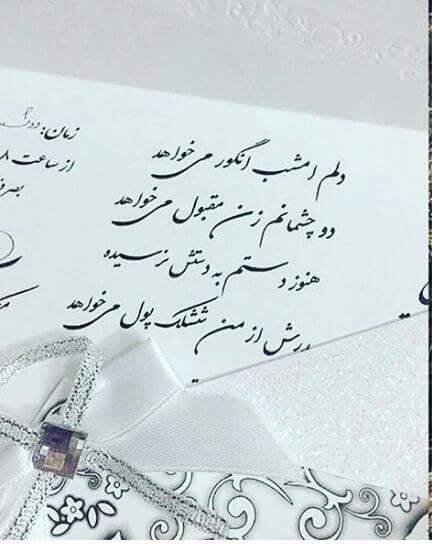 دلم امشب انگور می‌خواهد
دو چشمانم زن مقبول می‌خواهد
هنوز دستم به دستش نرسیده
پدرش از من ششلک پول می‌خواهد
زمان: دوشنبه
از ساعت ۸